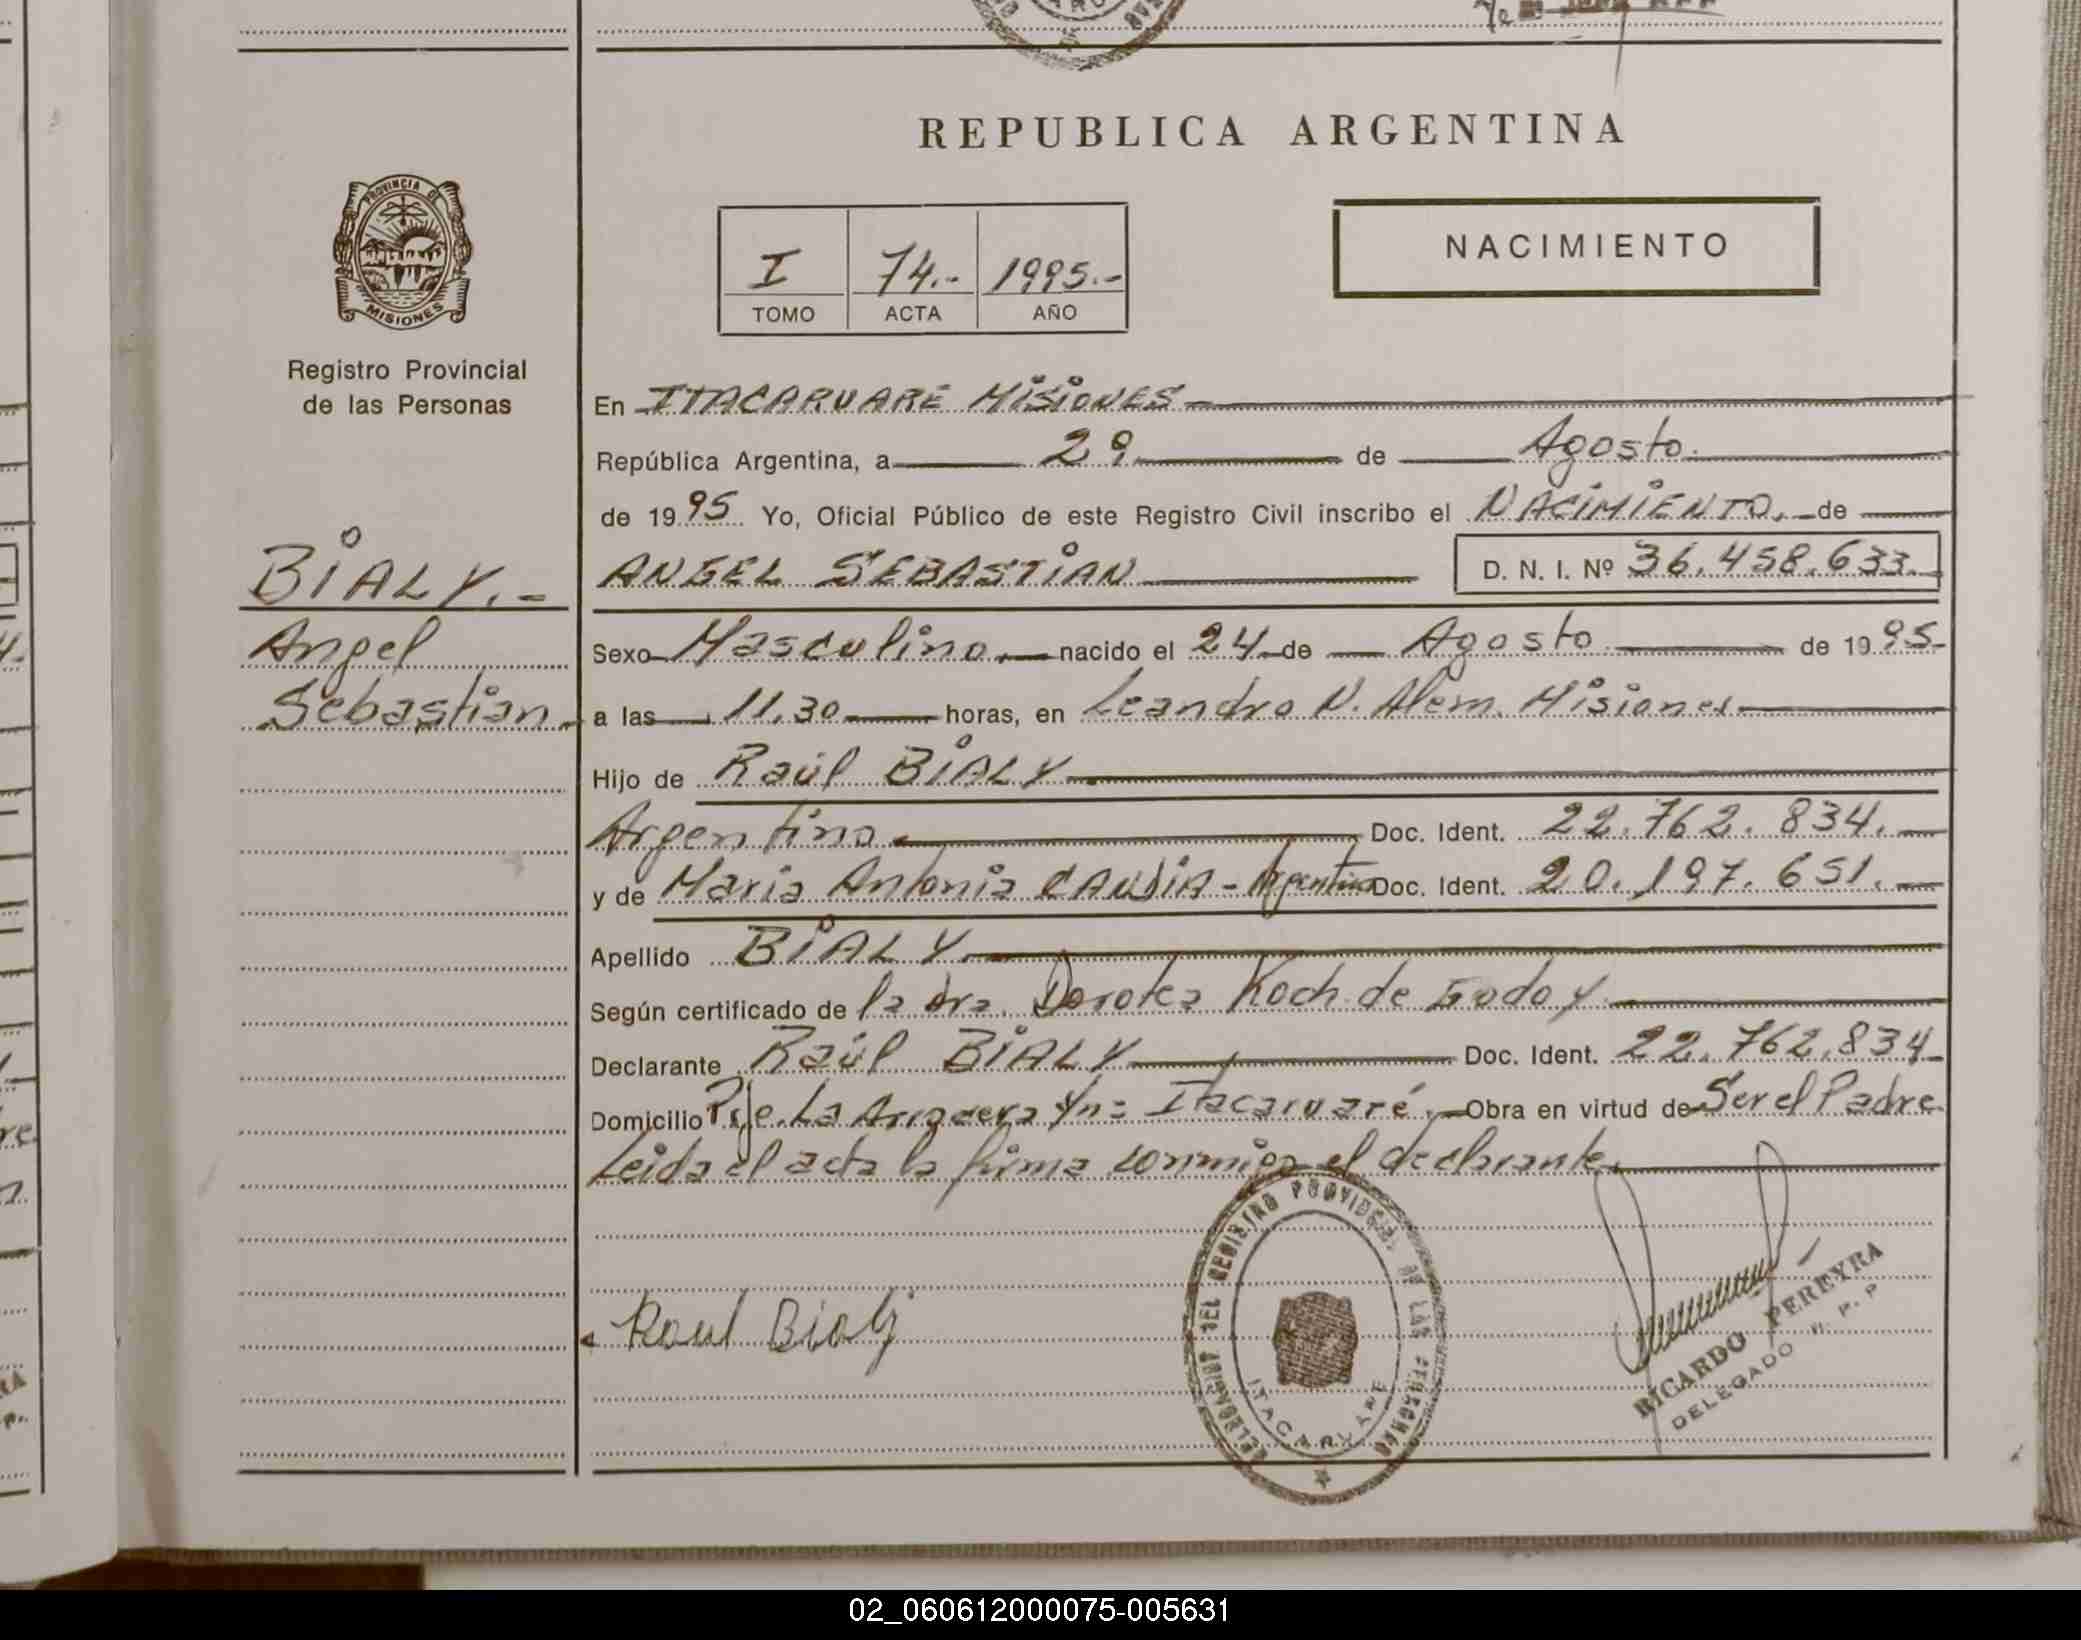 REPUBLICA ARGENTINA
PROVINCIA DE
MISIONES
Registro Provincial
de las Personas
I 74.- 1995.-
TOMO ACTA AÑO
NACIMIENTO
En ITACARUARE MISIONES
República Argentina, a 29 de Agosto.
de 1995 Yo, Oficial Público de este Registro Civil inscribo el NACIMIENTO. de
ANGEL SEBASTIAN D. N. I. Nº 36.458.633.
BIALY.-
Angel
Sebastian
Sexo Masculino. nacido el 24 de Agosto de 1995
a las 11.30 horas, en Leandro N. Alem. Misiones
Hijo de Raúl BIALY
Argentino Doc. Ident. 22.762.834.
y de Maria Antonia - Argentina Doc. Ident. 20.197.651.
Apellido BIALY
Según certificado de la dra. Dorotea Koch de Godoy
Declarante Raúl BIALY Doc. Ident. 22.762.834
Domicilio Itacaruaré. Obra en virtud de Ser el Padre
Leida el acta la firma conmigo el declarante.
Raul Bialy
DELEGACION DEL REGISTRO PROVINCIAL DE LAS PERSONAS
ITACARUARE
RICARDO PEREYRA
DELEGADO R. P. P
02_060612000075-005631